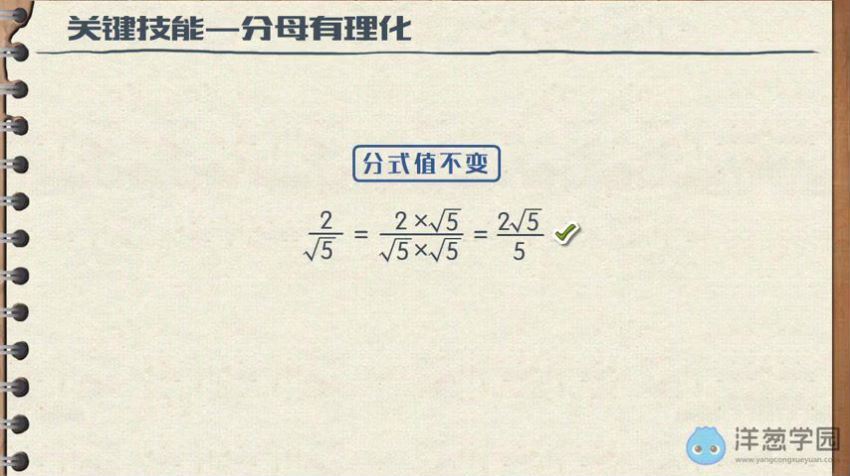 关键技能—分母有理化
分式值不变
2/√5 = 2×√5/√5×√5 = 2√5/5
洋葱学园
www.yangcongxueyuan.com